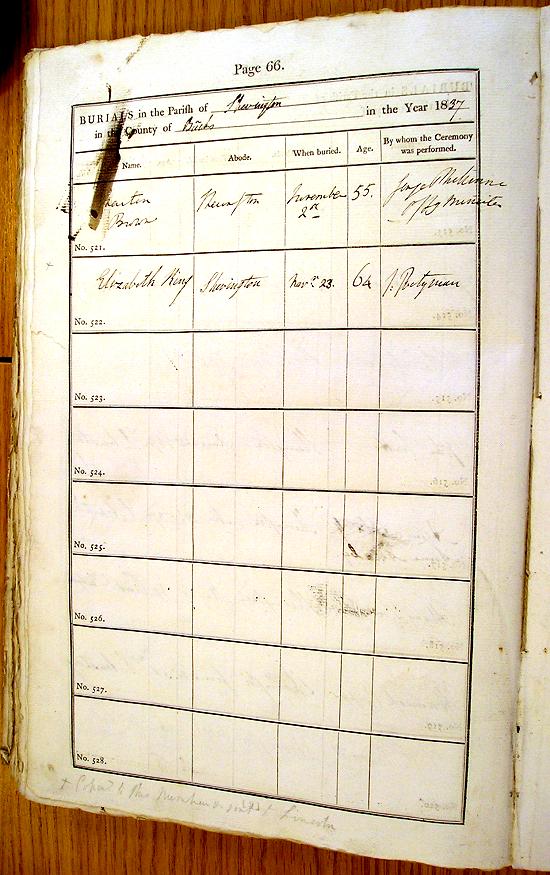 Page 66.
BURIALS in the Parish of Sherington in the Year 1837
in the County of Bucks
Name. Abode. When buried. Age. By whom the Ceremony was performed.
Brown November 2d 55. Offg Minister
No. 521.
Elizabeth King Sherington Novr 23. 64 J. Pretyman
No. 522.
No. 523.
No. 524.
No. 525.
No. 526.
No. 527.
No. 528.
+ Copied to this Number & sent to Lincoln